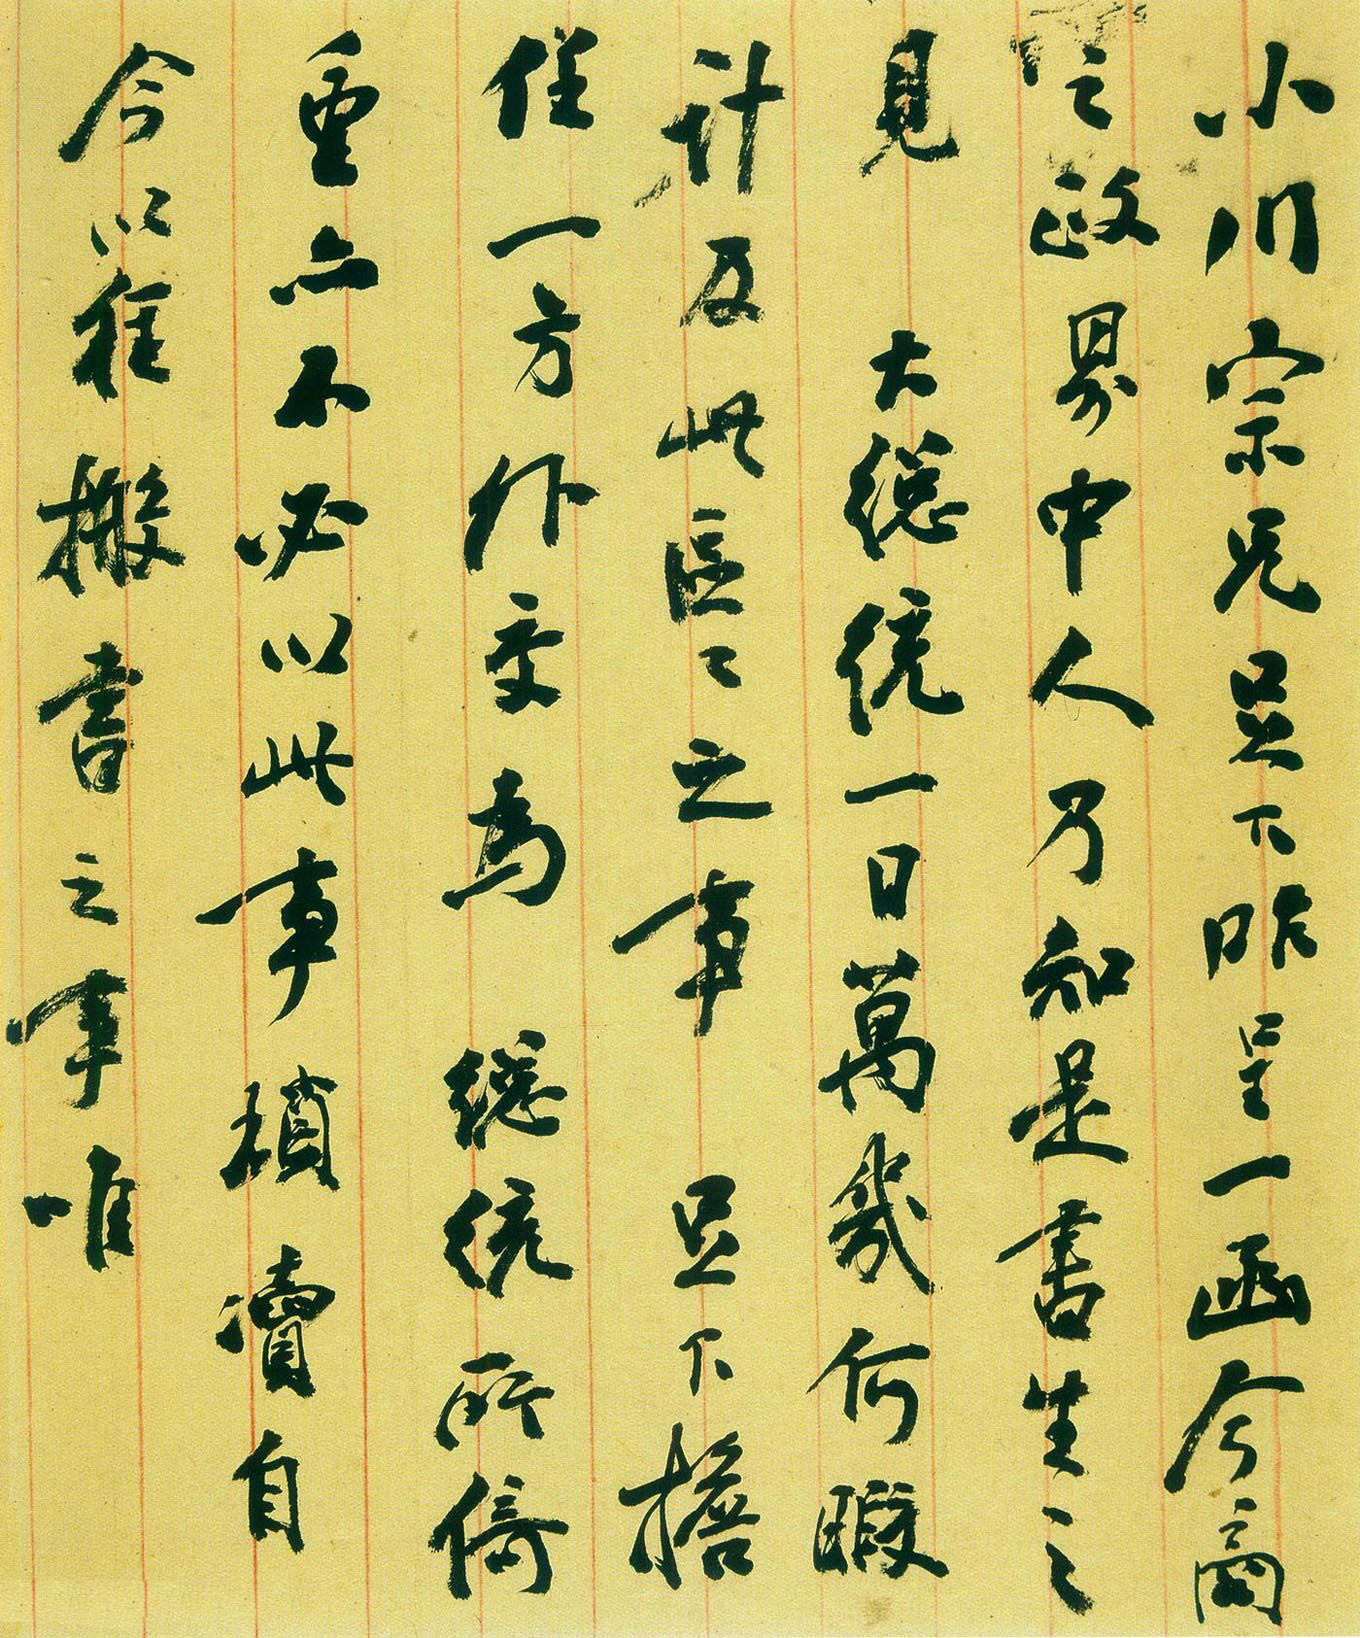 小川宗兄足下昨呈一函今商
之政界中人乃知是書生之
見　大總統一日萬幾何暇
計及此區〻之事　足下擔
任一方外交為　總統所倚
重亦不必以此事瑣瀆自
今以往搬書之事唯